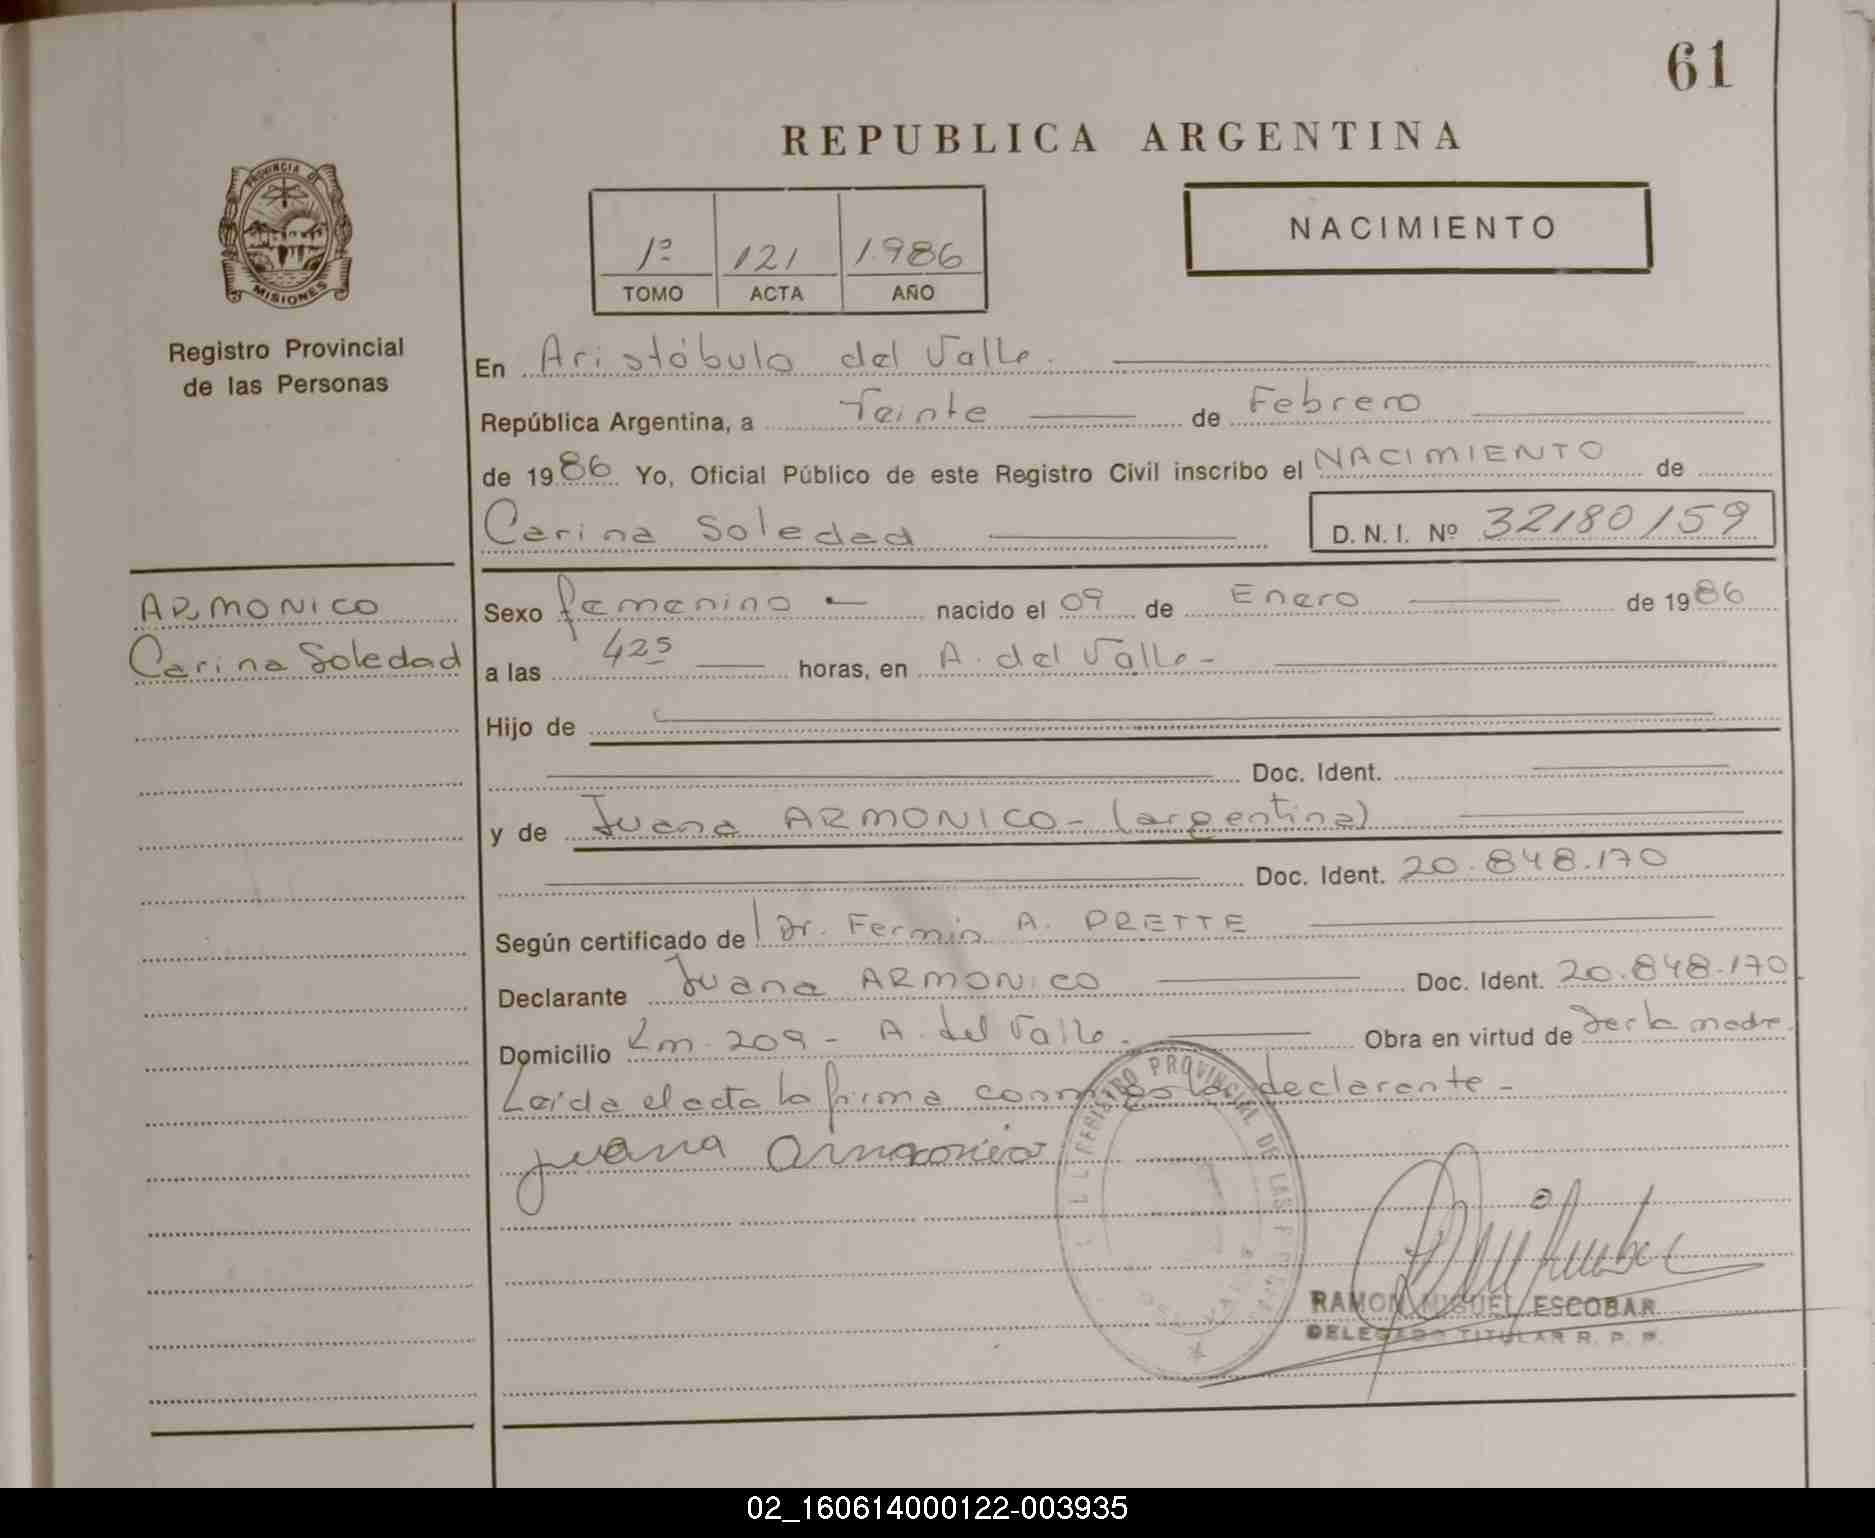 61
REPUBLICA ARGENTINA
PROVINCIA DE
MISIONES
Registro Provincial
de las Personas
1º 121 1.986
TOMO ACTA AÑO
NACIMIENTO
En Aristóbulo del Valle.
República Argentina, a Veinte de Febrero
de 1986 Yo, Oficial Público de este Registro Civil inscribo el NACIMIENTO de
Carina Soledad D.N.I. Nº 32180159
ARMONICO
Carina Soledad
Sexo femenino nacido el 09 de Enero de 1986
a las 4 25 horas, en A. del Valle-
Hijo de
Doc. Ident.
y de Juana ARMONICO- (argentina)
Doc. Ident. 20.848.170
Según certificado de Dr. Fermin A. PRETTE
Declarante Juana ARMONICO Doc. Ident. 20.848.170
Domicilio Km. 209 - A. del Valle. Obra en virtud de ser la madre.
Leida el acta la firma conmigo la declarante-
Juana Armonico
REGISTRO PROVINCIAL DE LAS
DEL VALLE
RAMON MIGUEL ESCOBAR
DELEGADO TITULAR R. P. P.
02_160614000122-003935